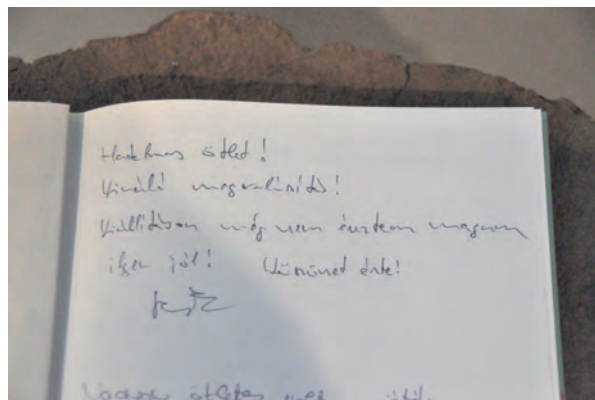 Hatalmas ötlet!
Kiváló megvalósítás!
Kiállításon még nem éreztem magam
ilyen jól! Köszönet érte!
ötletes volt